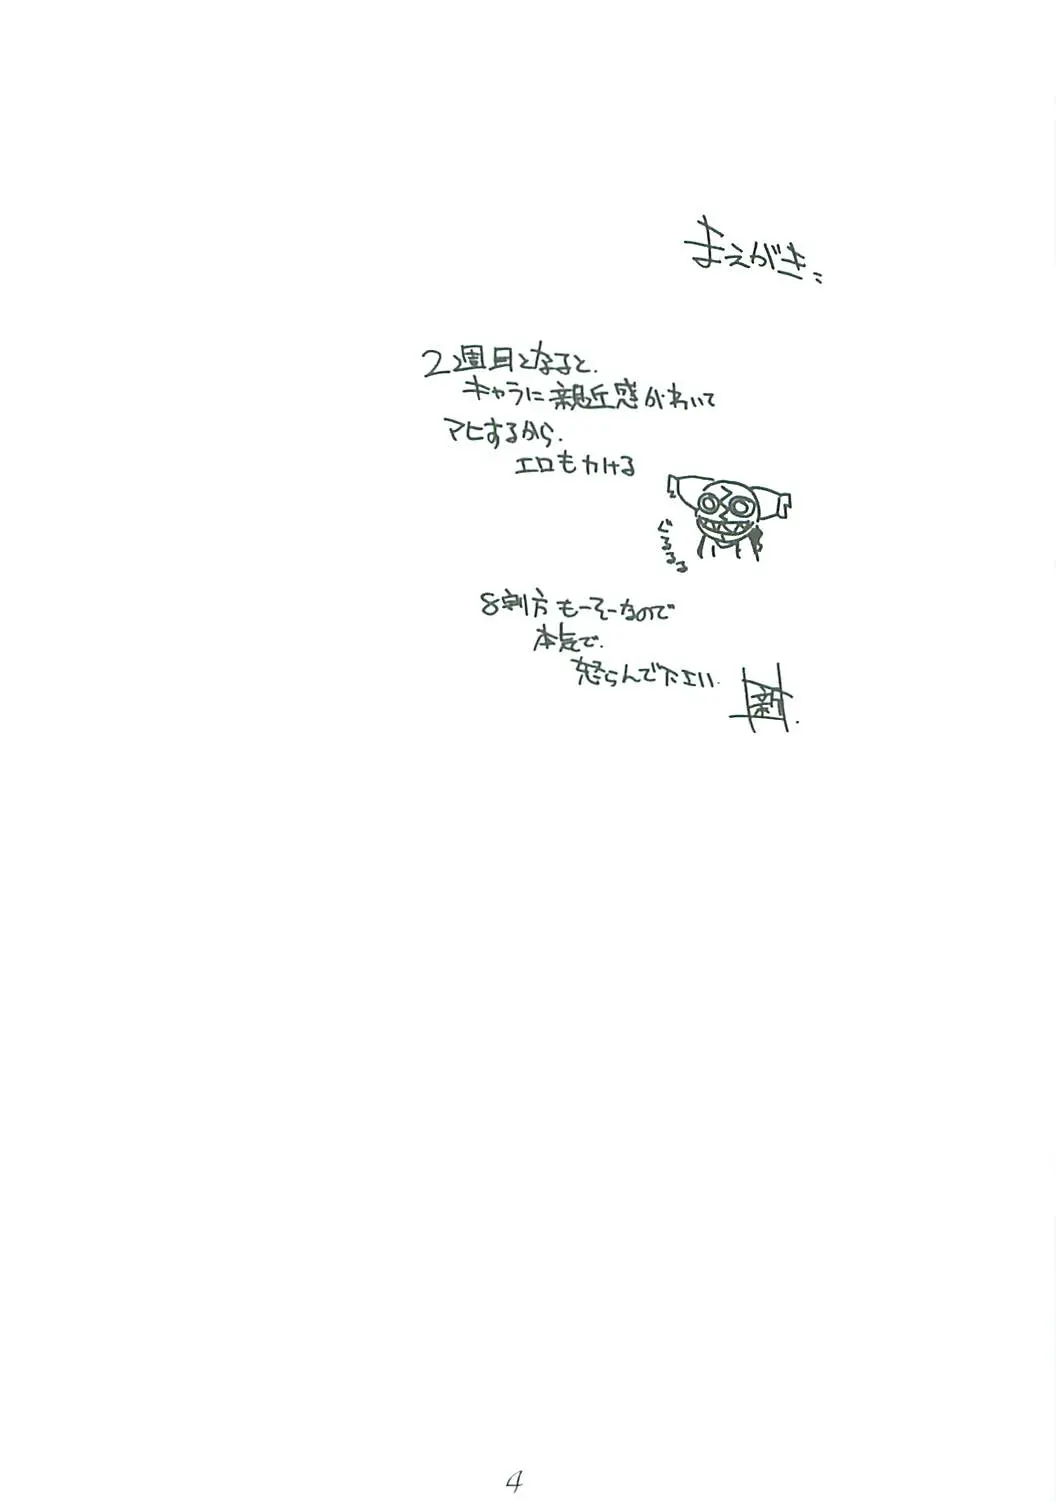 まえがき:
2週目となると.
キャラに親近感がわいて
マヒするから.
エロもかける
ぐるるる
8割方もーそーなので
本気で.
怒らんで下エい.
新.
4